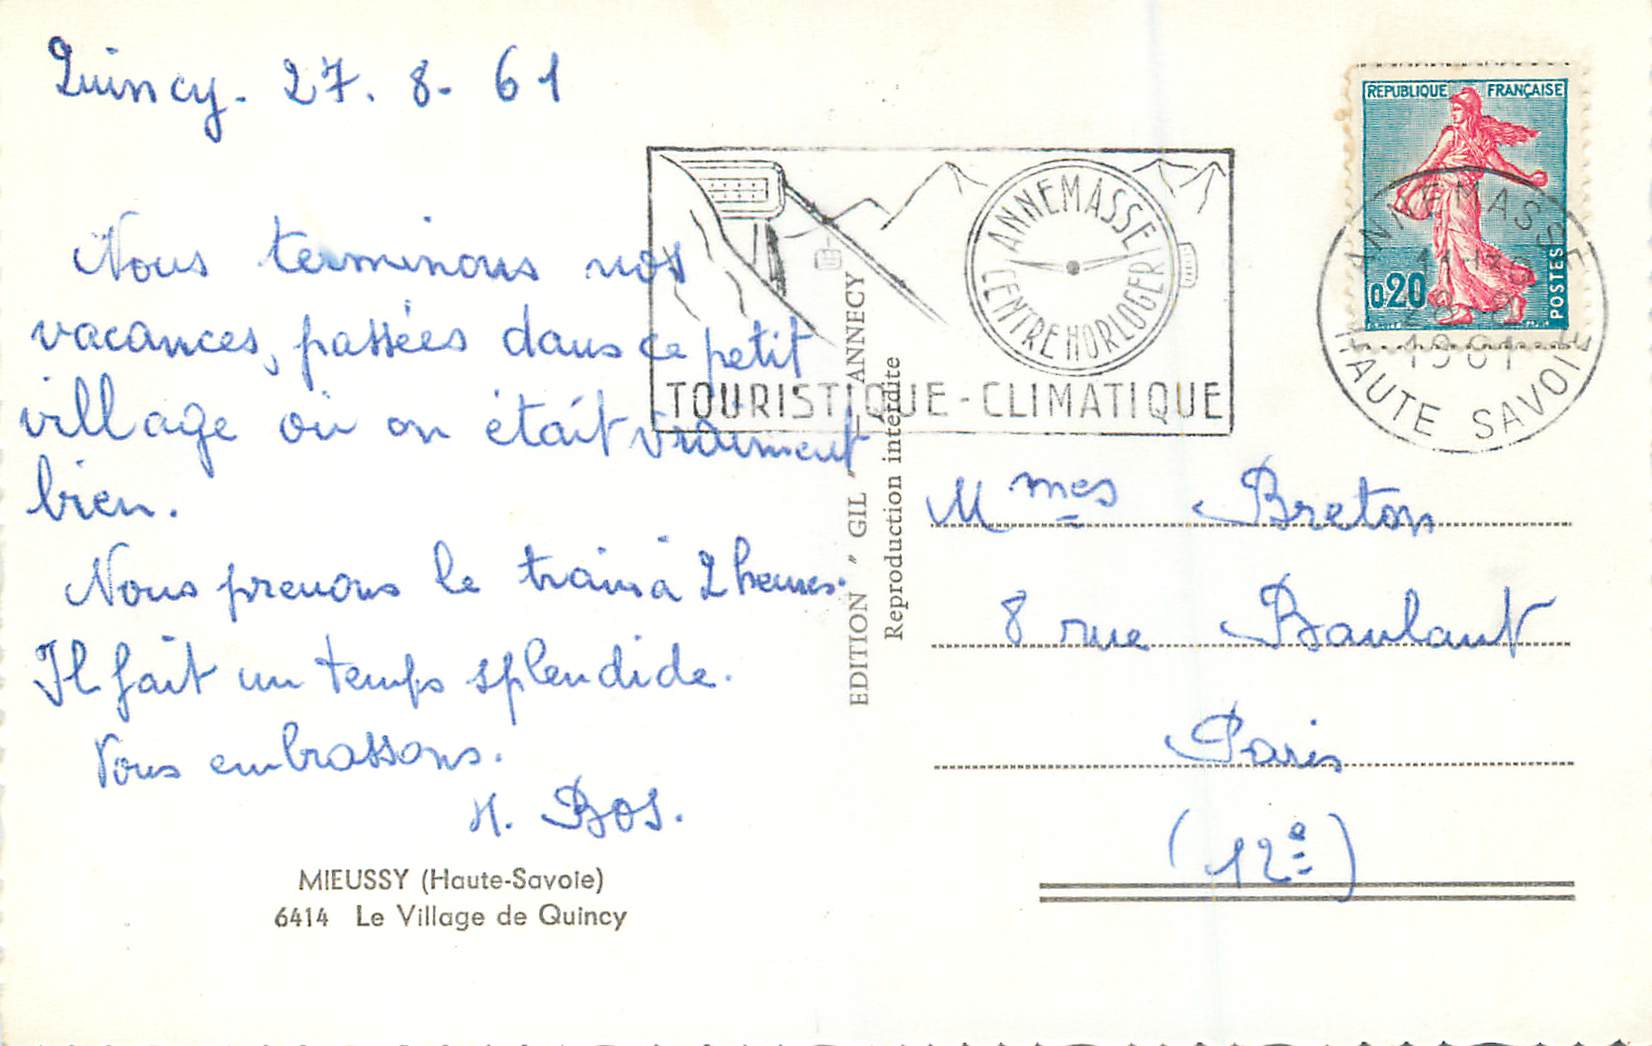 Quincy. 27. 8. 61
Nous terminons nos
vacances, passées dans ce petit
village où on était vraiment
bien.
Nous prenons le train à 2 heures.
Il fait un temps splendide.
Vous embrassons.
H. Bos.
MIEUSSY (Haute-Savoie)
6414 Le Village de Quincy
EDITION " GIL " - ANNECY
Reproduction interdite
ANNEMASSE
CENTRE HORLOGER
TOURISTIQUE - CLIMATIQUE
REPUBLIQUE FRANÇAISE
0,20
POSTES
ANNEMASSE
1961
HAUTE SAVOIE
Mmes Breton
8 rue Baulant
Paris
(12e)